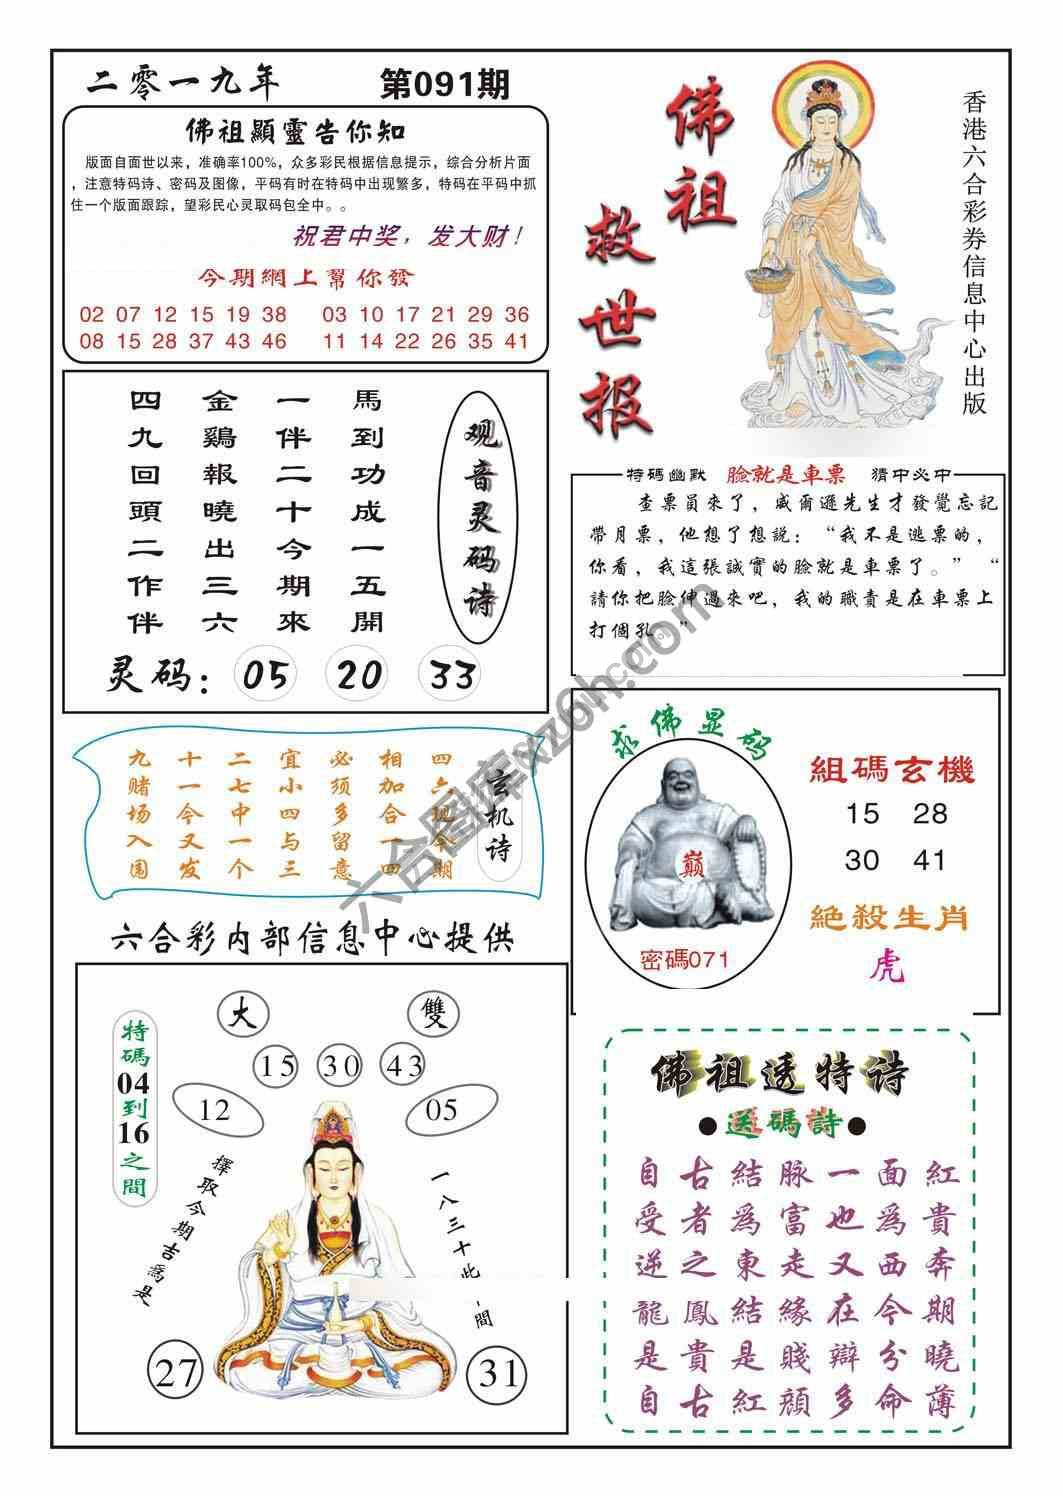 二零一九年 第091期
佛祖顯靈告你知
版面自面世以来，准确率100%，众多彩民根据信息提示，综合分析片面
，注意特码诗、密码及图像，平码有时在特码中出现繁多，特码在平码中抓
住一个版面跟踪，望彩民心灵取码包全中。。
祝君中奖，发大财！
今期網上幫你發
02 07 12 15 19 38 03 10 17 21 29 36
08 15 28 37 43 46 11 14 22 26 35 41
佛祖
救世报
香港六合彩券信息中心出版
观音灵码诗
馬到功成一五開
一伴二十今期來
金鷄報曉出三六
四九回頭二作伴
灵码：05 20 33
特碼幽默 臉就是車票 猜中必中
查票員來了，威爾遜先生才發覺忘記
帶月票，他想了想説：“我不是逃票的，
你看，我這張誠實的臉就是車票了。” “
請你把臉伸過來吧，我的職責是在車票上
打個孔。”
玄机诗
四六现今期
相加合一四
必须多留意
宜小四与三
二七中一个
十一今又发
九赌场入围
求佛显码
巅
密碼071
組碼玄機
15 28
30 41
絶殺生肖
虎
六合彩内部信息中心提供
大 雙
15 30 43
12 05
特碼04到16之間
擇取今期吉為是
一八三十此一間
27 31
佛祖透特诗
●送碼詩●
自古結脉一面紅
受者為富也為貴
逆之東走又西奔
龍鳳結緣在今期
是貴是賤辯分曉
自古紅顔多命薄
六合图库xz6h.com